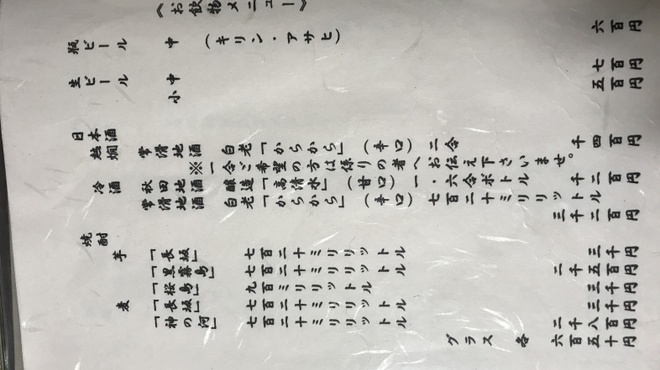 《お飲物メニュー》
瓶ビール 中 (キリン・アサヒ) 六百円
生ビール 中 七百円
小 五百円
日本酒
熱燗 常滑地酒 白老「からから」(辛口) 二合 千四百円
※一合ご希望の方は係りの者へお伝え下さいませ。
冷酒 秋田地酒 醸造「高清水」(甘口) 一・六合ボトル 千二百円
常滑地酒 白老「からから」(辛口) 七百二十ミリリットル 三千二百円
焼酎
芋 「長坂」 七百二十ミリリットル 三千円
「黒霧島」 七百二十ミリリットル 二千五百円
「桜島」 九百ミリリットル 三千円
麦 「長坂」 七百二十ミリリットル 三千円
「神の河」 七百二十ミリリットル 二千八百円
グラス 各 六百五十円